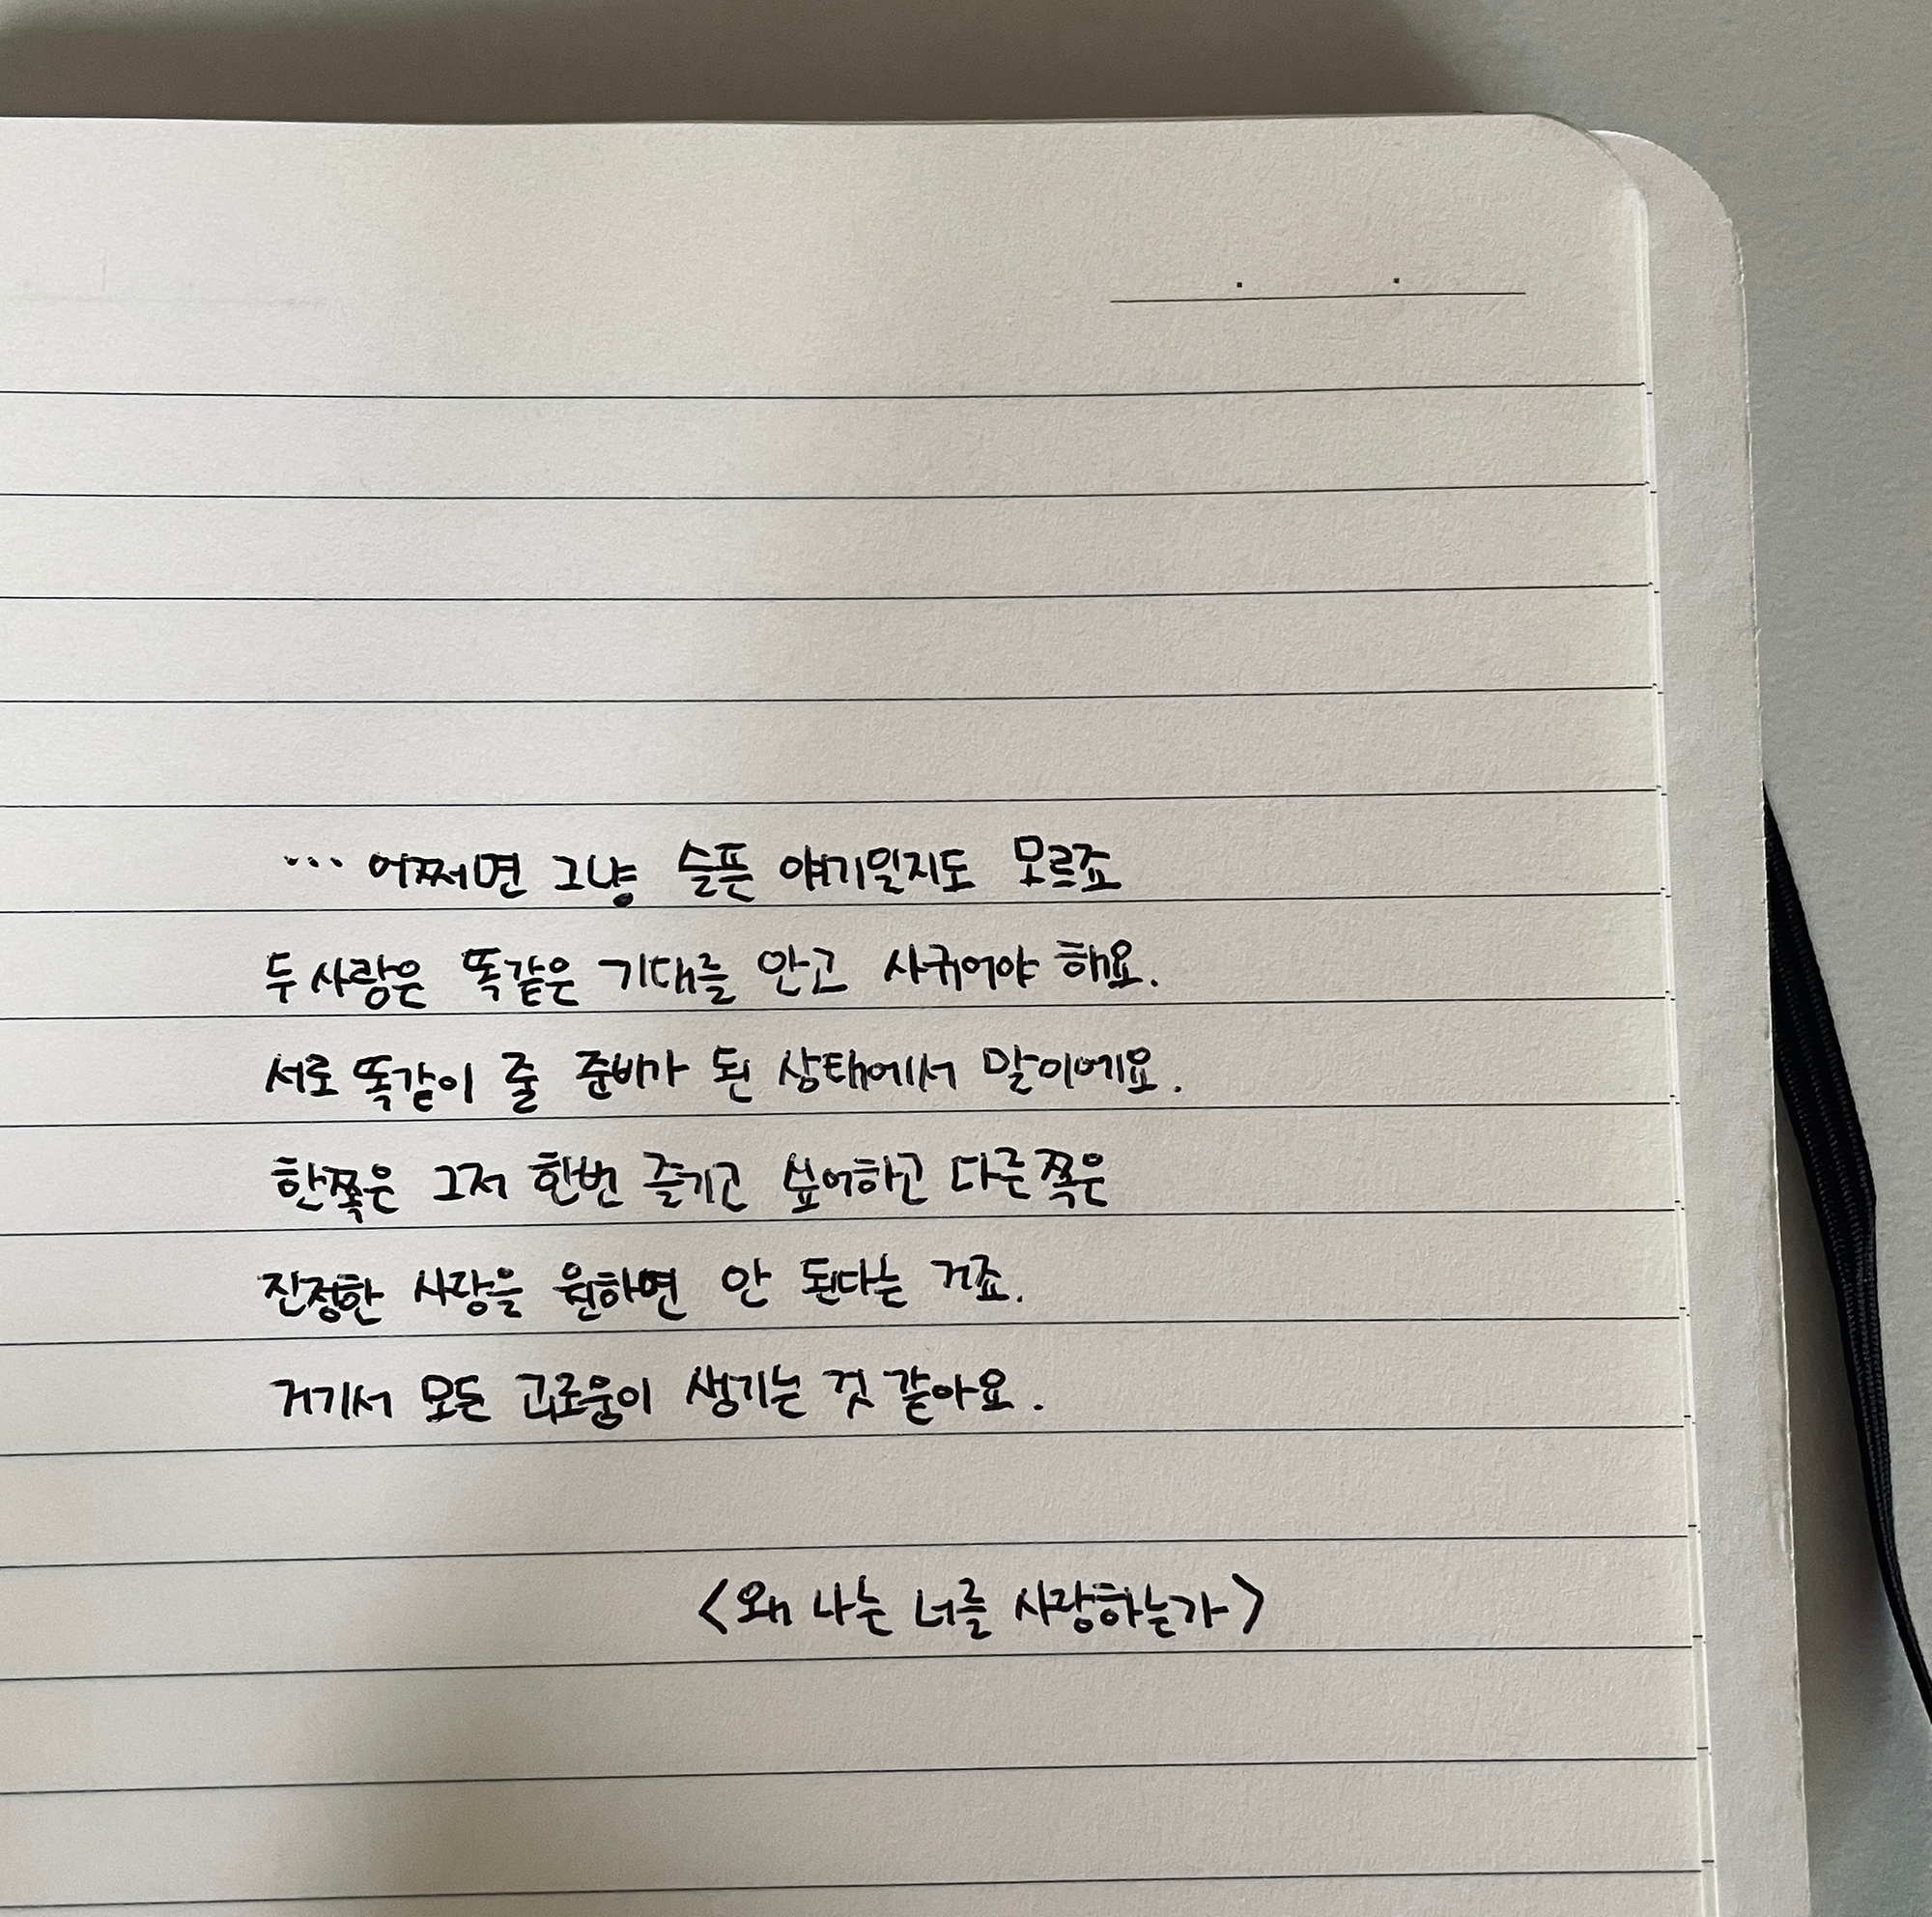 ... 어쩌면 그냥 슬픈 얘기일지도 모르죠
두 사랑은 똑같은 기대를 안고 사귀어야 해요.
서로 똑같이 줄 준비가 된 상태에서 말이에요.
한쪽은 그저 한번 즐기고 싶어하고 다른쪽은
진정한 사랑을 원하면 안 된다는 거죠.
거기서 모든 괴로움이 생기는 것 같아요.
<왜 나는 너를 사랑하는가>